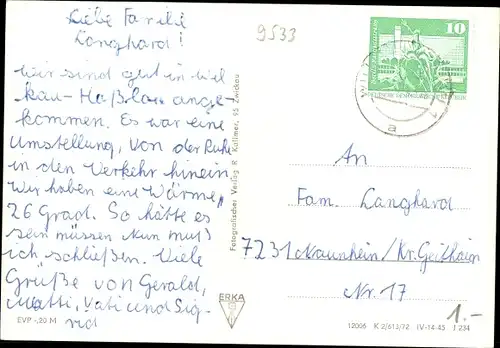 Liebe Familie
Langhard!
Wir sind gut in Wil
kau-Haßlau ange-
kommen. Es war eine
Umstellung, von der Ruhe
in den Verkehr hinein.
Wir haben eine Wärme,
26 Grad. So hätte es
sein müssen. Nun muß
ich schließen. Viele
Grüße von Gerald,
Matti, Vati und Sig-
rid
9533
10
An
Fam. Langhard
7231 Nauenhain/Kr. Geithain
Nr. 17
1.-
Fotografischer Verlag R. Kallmer, 95 Zwickau
ERKA
EVP -,20 M
12006 K 2/613/72 IV-14-45 J 234